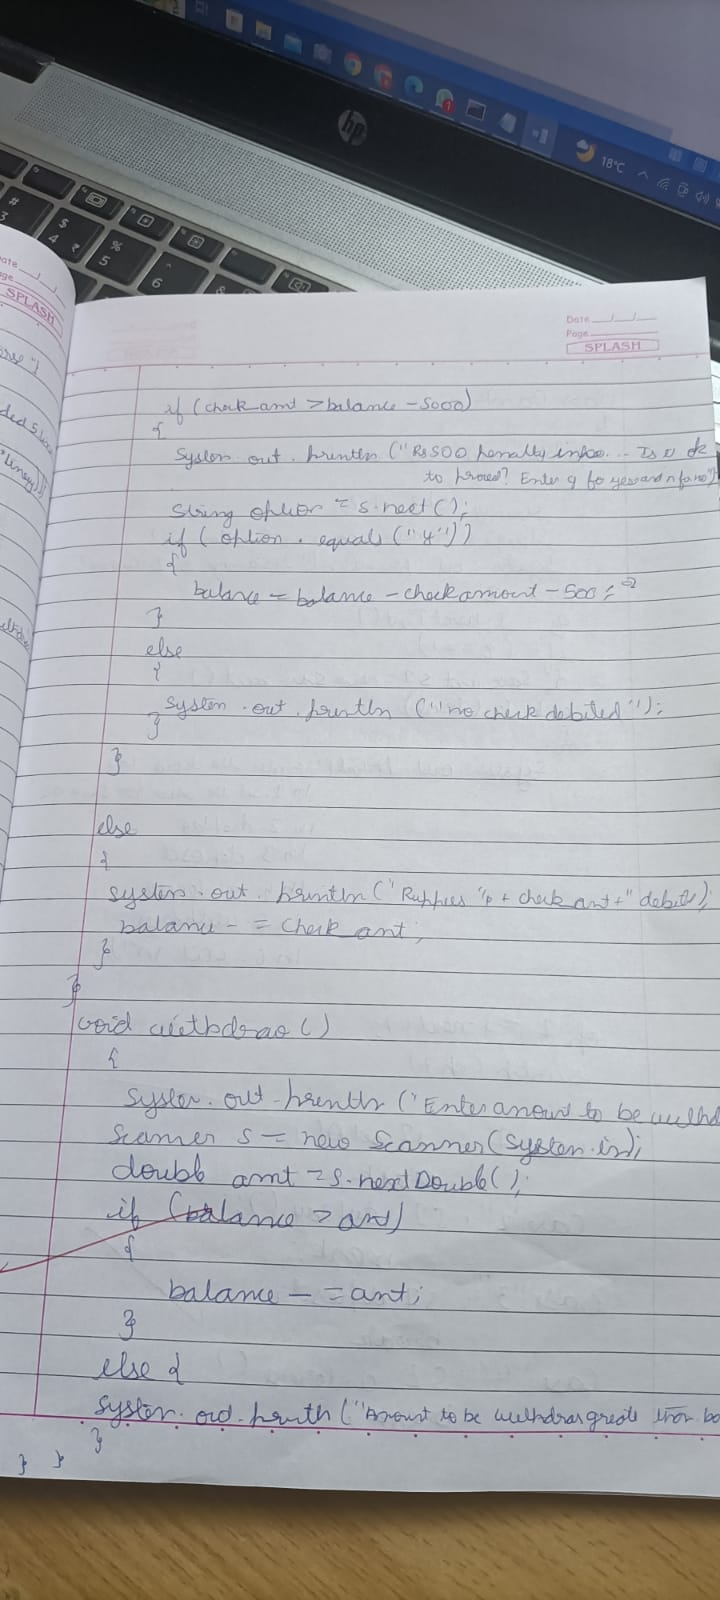 hp
18°C
Date
Page
SPLASH
if (check amt > balance - 5000)
{
System. out. println ("Rs500 penalty
to proceed? Enter y for yes and n for no")
String option = s.next();
if (option. equals ("y"))
{
balance = balance - checkamount - 500;
}
else
{
System. out. println ("no check debited");
}
}
else
{
system. out. println ("Ruppies "+ check amt +" debit);
balance - = Check amt;
}
}
void withdraw()
{
System. out. println ("Enter amount to be withd
Scanner s = new Scanner(System.in);
double amt = s.nextDouble();
if (balance > amt)
{
balance - = amt;
}
else {
System. out. println ("Amount to be withdraw greate than ba
}
} }